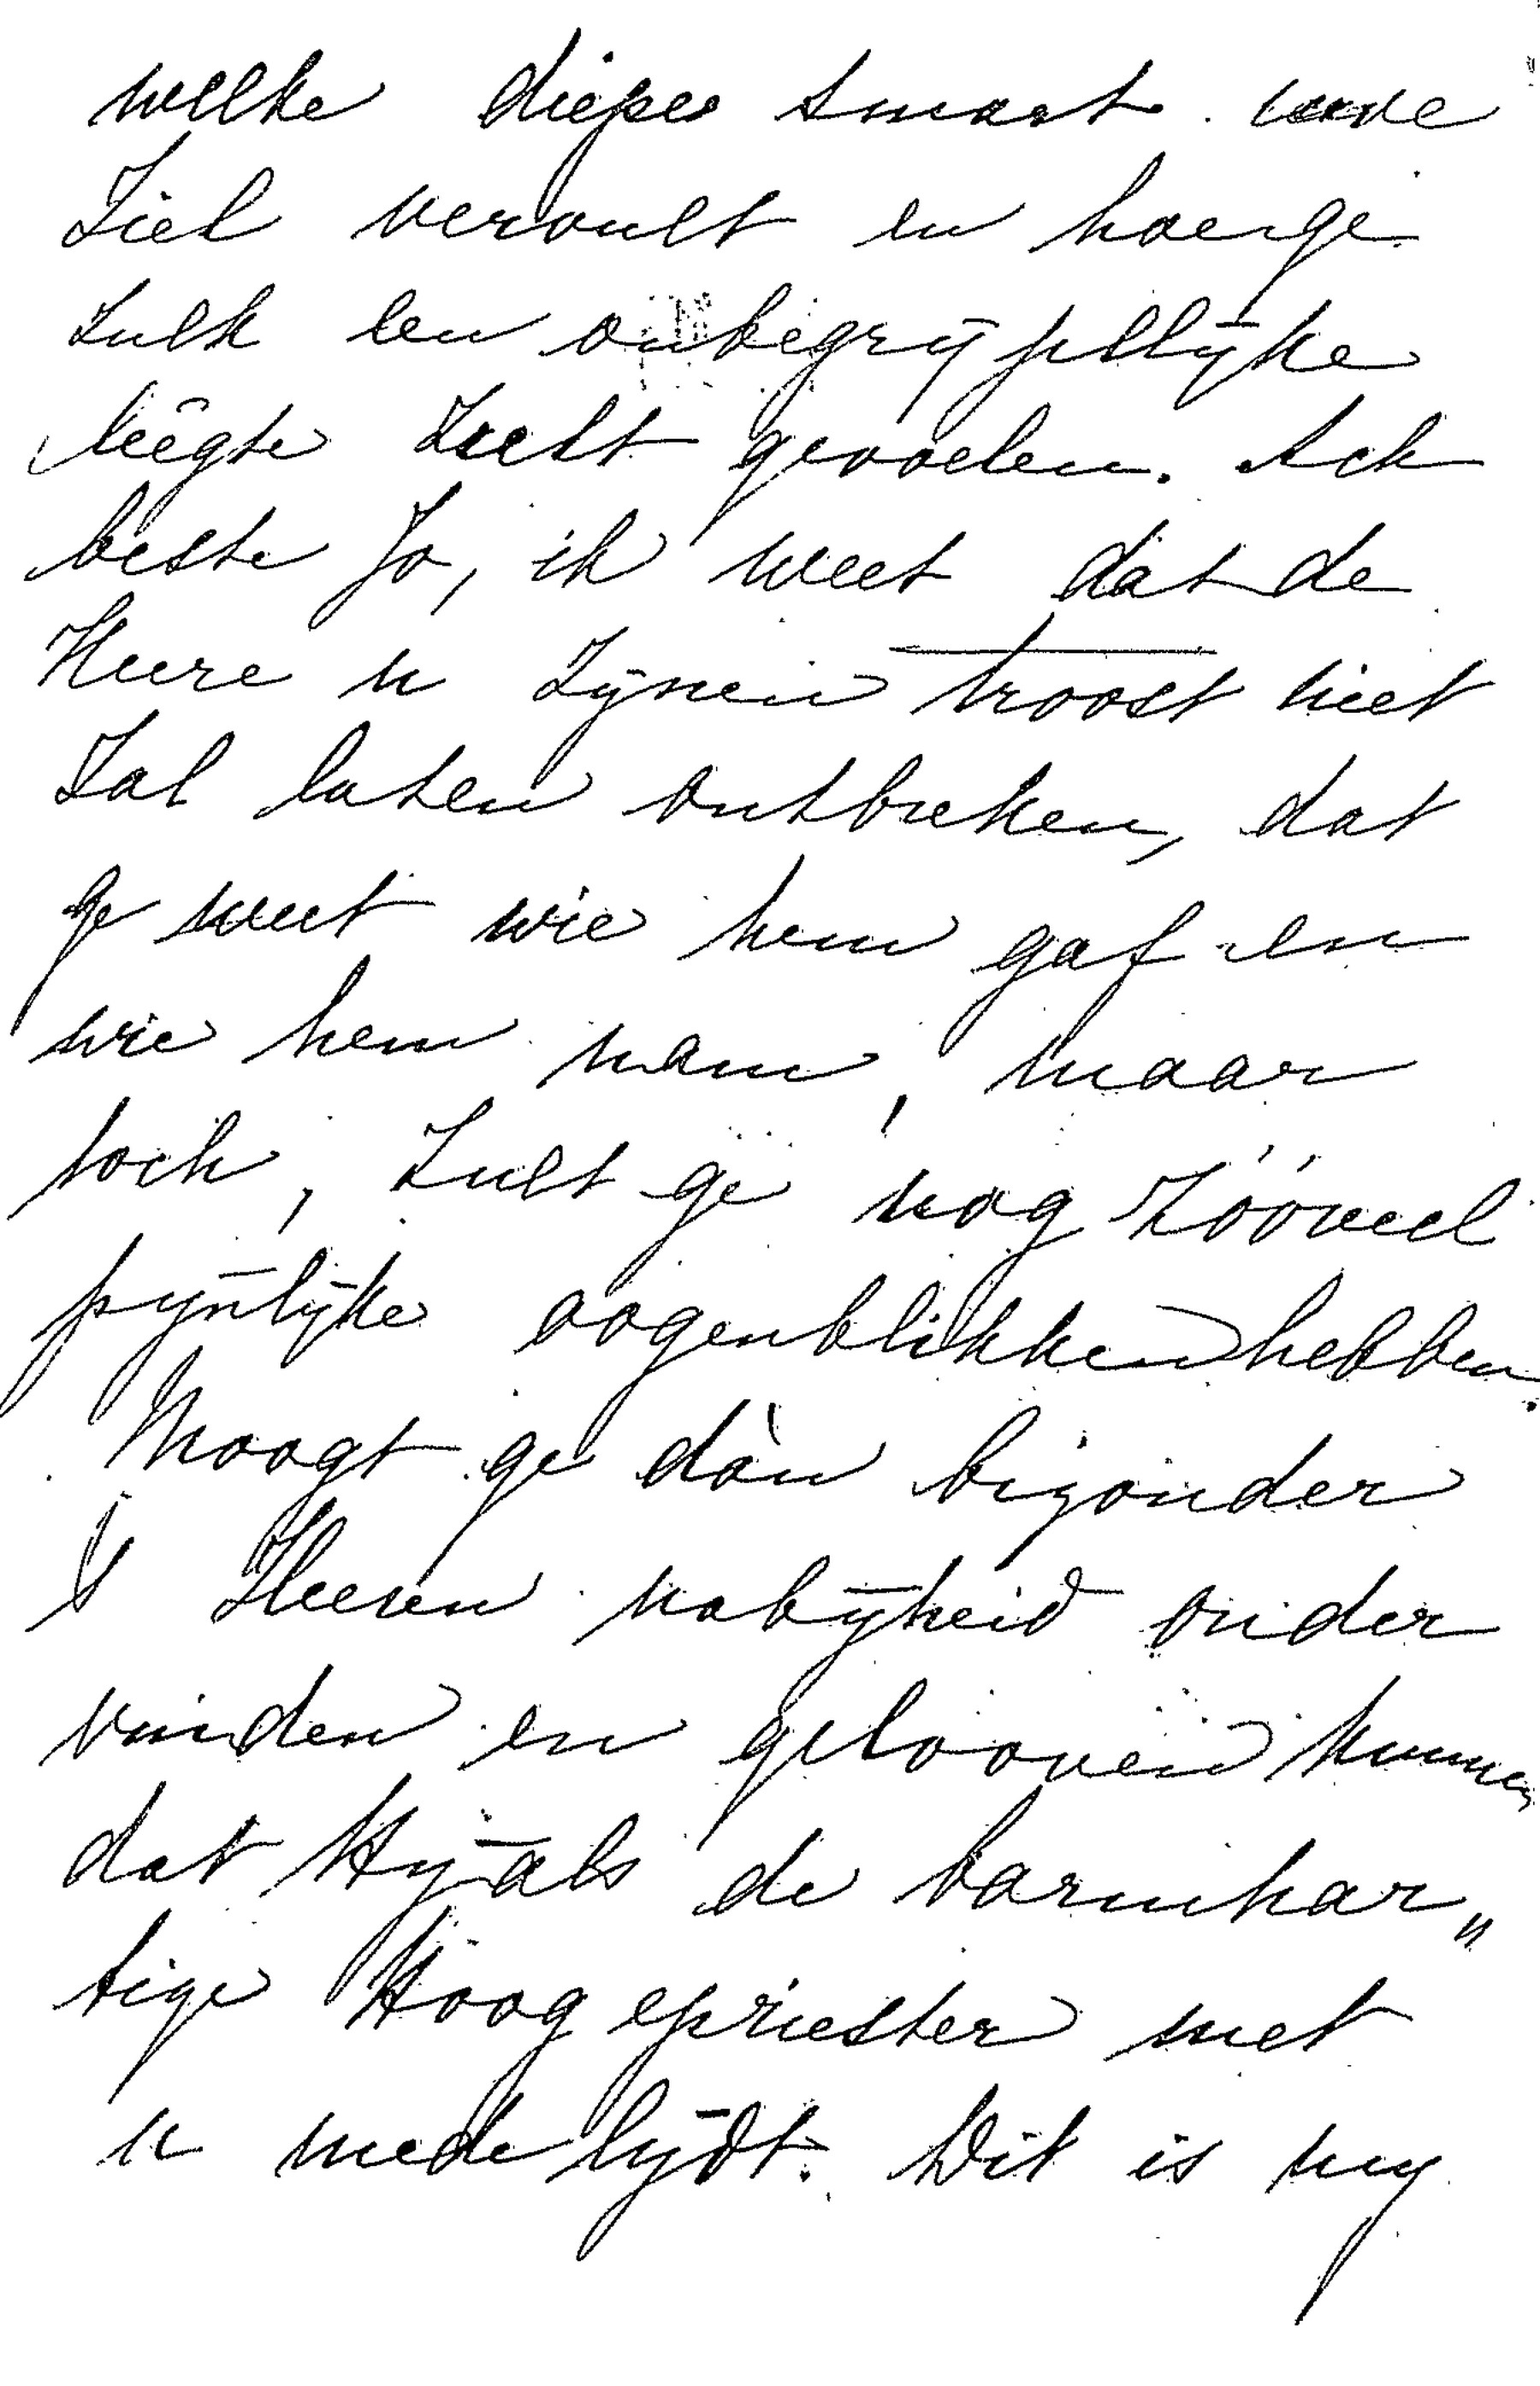 welke diepe smart uwe
Ziel vervult en hoe ge
Zulk een onbegrijpelijke
leégte Zult gevoelen. Ach
beste Jo, ik weet dat de
Heere u Zijnen troost niet
Zal laten ontbreken, dat
ge weet wie hem gaf en
wie hem nam, maar
toch, Zult ge nog Zóóveel
pijnlijke oogenblikken hebben.
Moogt ge dàn bizonder
's Heeren nabijheid onder
vinden en gelooven kunnen
dat Hij als de barmhar„
tige Hoogepriester met
u mede lijdt. Dit is mij